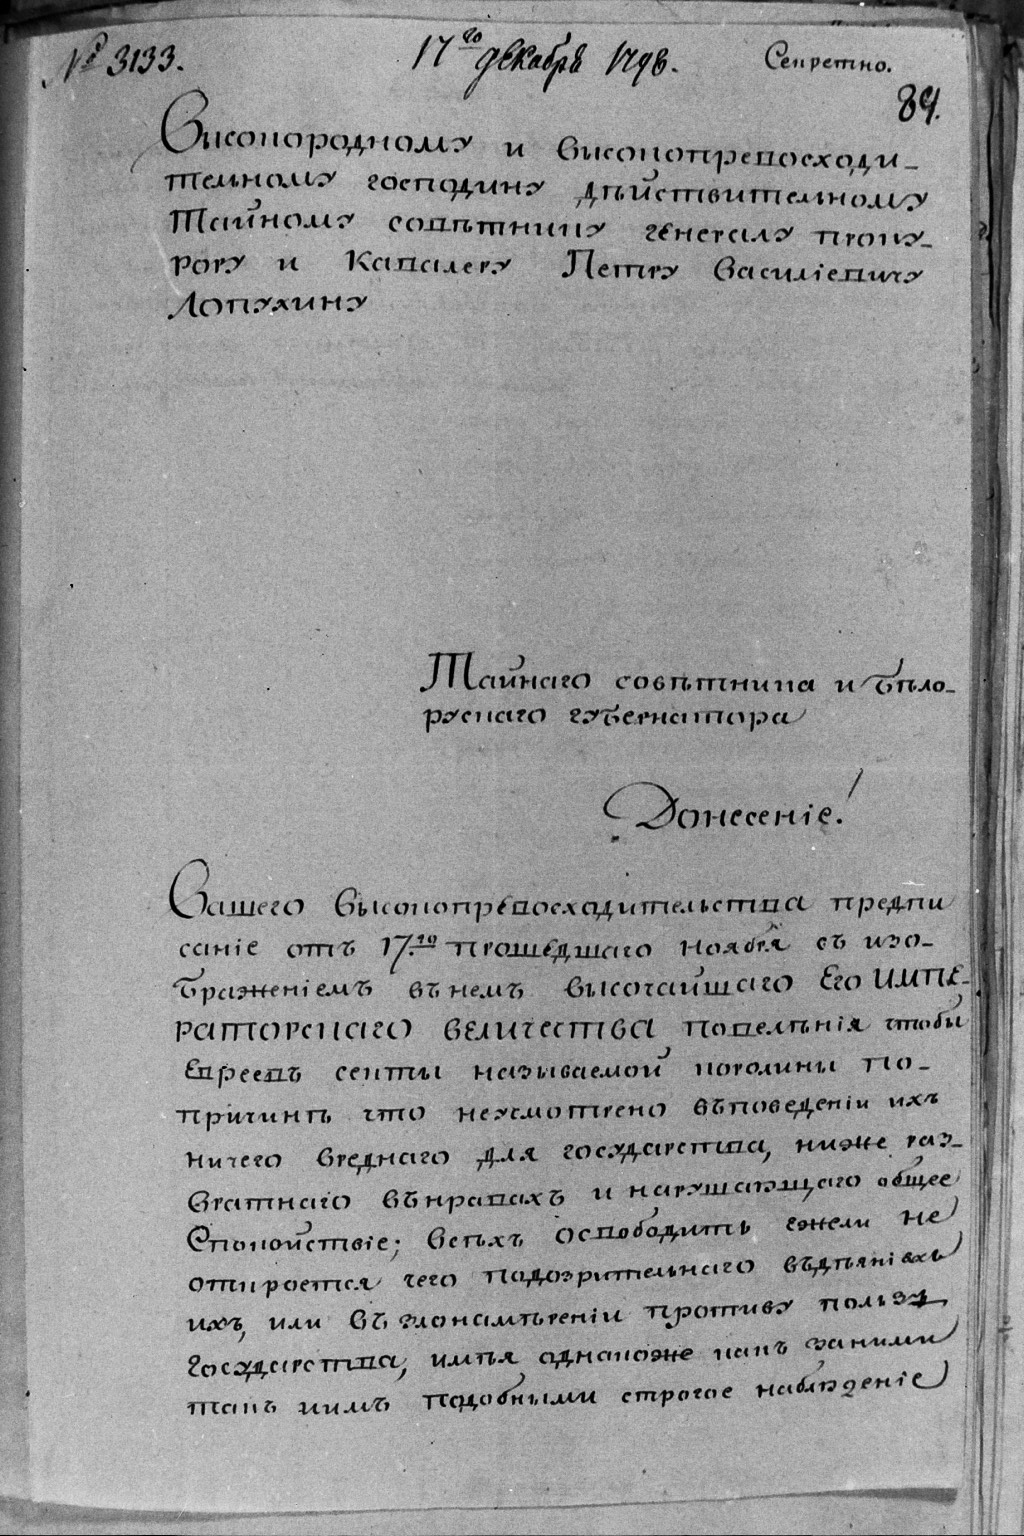 № 3133.
17го декабря 1798.
Секретно.
84.
Высокородному и высокопревосходи-
тельному господину дѣйствительному
Тайному совѣтнику генералу проку-
рору и Кавалеру Петру Василіевичу
Лопухину
Тайнаго совѣтника и бѣло-
рускаго губернатора
Донесеніе!
Вашего высокопревосходительства предпи
саніе отъ 17.го прошедшаго ноября съ изо-
браженіемъ въ немъ высочайшаго Его ИМПЕ-
РАТОРСКАГО ВЕЛИЧЕСТВА повелѣнія чтобы
Евреевъ секты называемой каролины по-
причинѣ что неусмотрено въповеденіи ихъ
ничего вреднаго для государства, ниже раз-
вратнаго въ нравахъ и нарушающаго общее
Спокойствіе; всѣхъ освободить ежели не
откроется чего подозрительнаго въдѣяніяхъ
ихъ, или въ злонамѣреніи противу пользу
государства, имѣя однакоже какъ заними
такъ и имъ подобными строгое наблюденіе